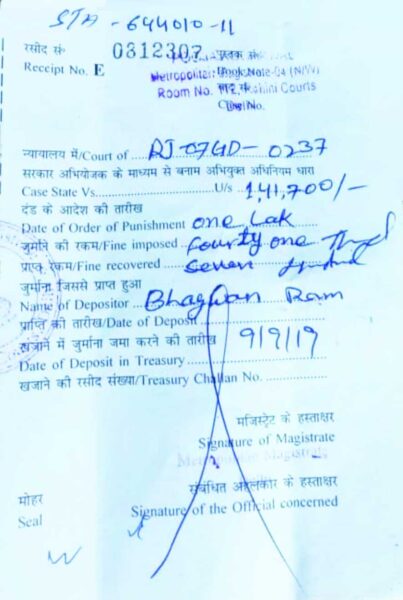 STA - 644010-11
रसीद सं॰ 0312307 पुस्तक सं॰
Receipt No. E Book No.
Metropolitan Note-04 (N/W)
Room No. 112, Rohini Courts
न्यायालय में/Court of ... RJ-07GD-0237
सरकार अभियोजक के माध्यम से बनाम अभियुक्त अधिनियम धारा
Case State Vs. U/s 1,41,700/-
दंड के आदेश की तारीख
Date of Order of Punishment one Lak
जुर्माने की रकम/Fine imposed Fourty one
प्राप्त रकम/Fine recovered Seven
जुर्माना जिससे प्राप्त हुआ
Name of Depositor Bhagwan Ram
प्राप्ति की तारीख/Date of Deposit
खजाने में जुर्माना जमा करने की तारीख 9/9/19
Date of Deposit in Treasury
खजाने की रसीद संख्या/Treasury Challan No.
मजिस्ट्रेट के हस्ताक्षर
Signature of Magistrate
Metropolitan Magistrate
संबंधित अहलकार के हस्ताक्षर
मोहर Signature of the Official concerned
Seal